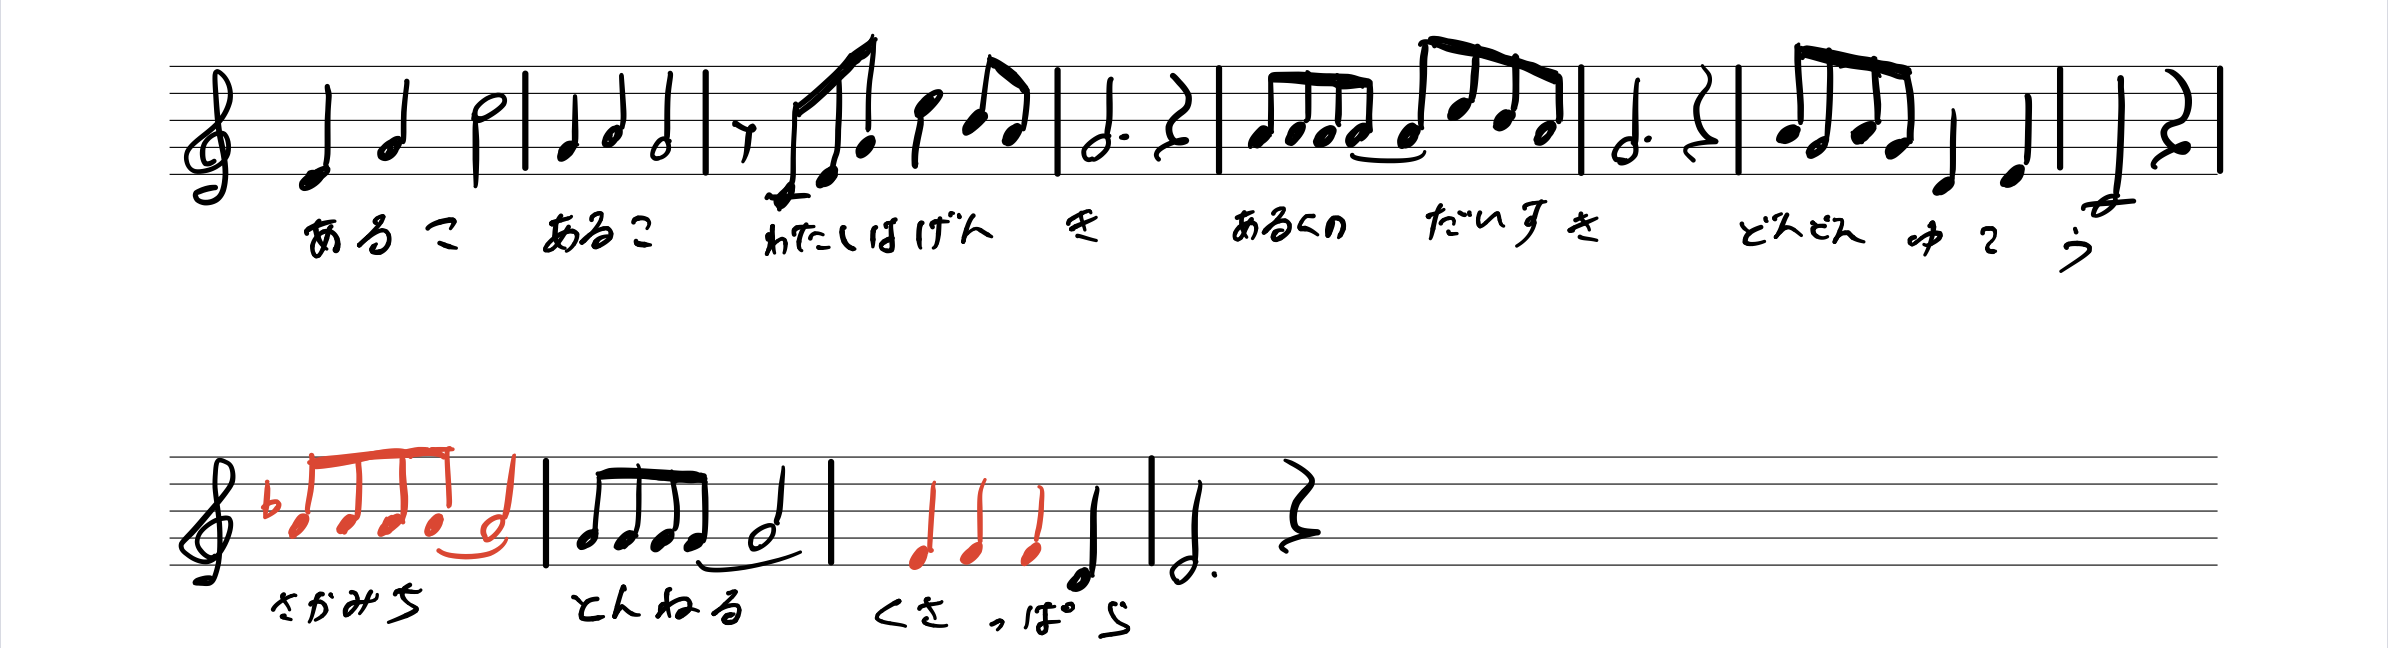 あるこ あるこ わたしはげん き あるくの だいす き どんどん ゆこ う
さかみち とんねる くさっぱら